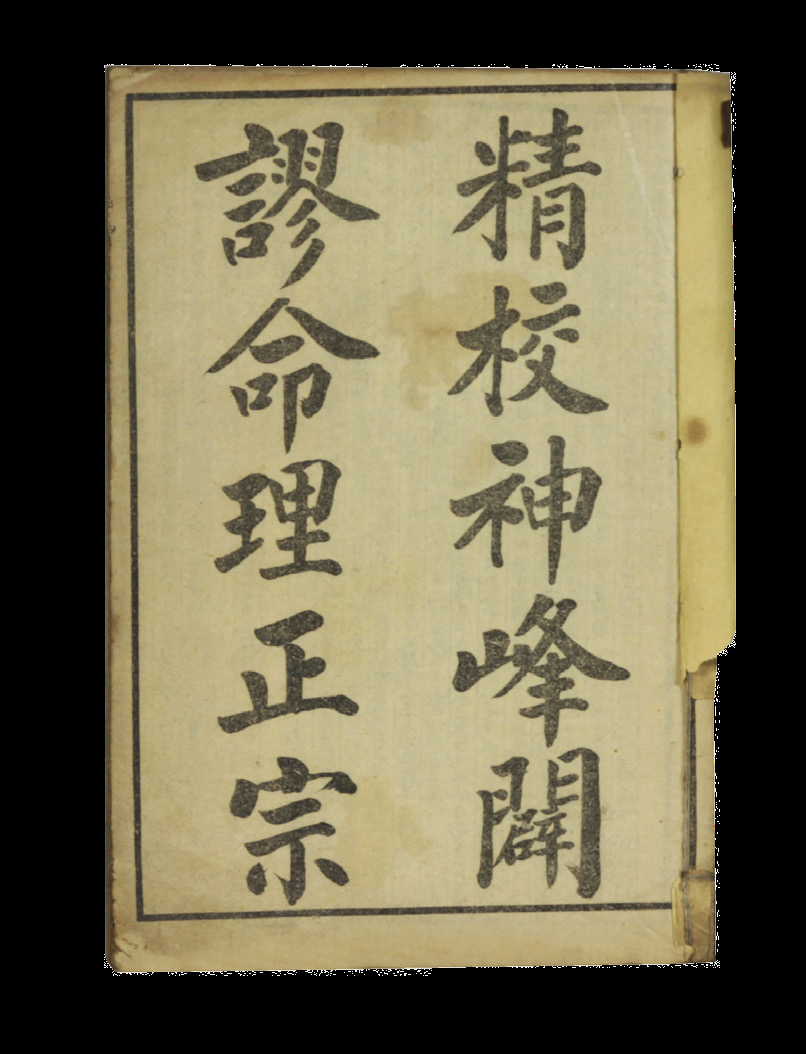 精校神峰闢
謬命理正宗